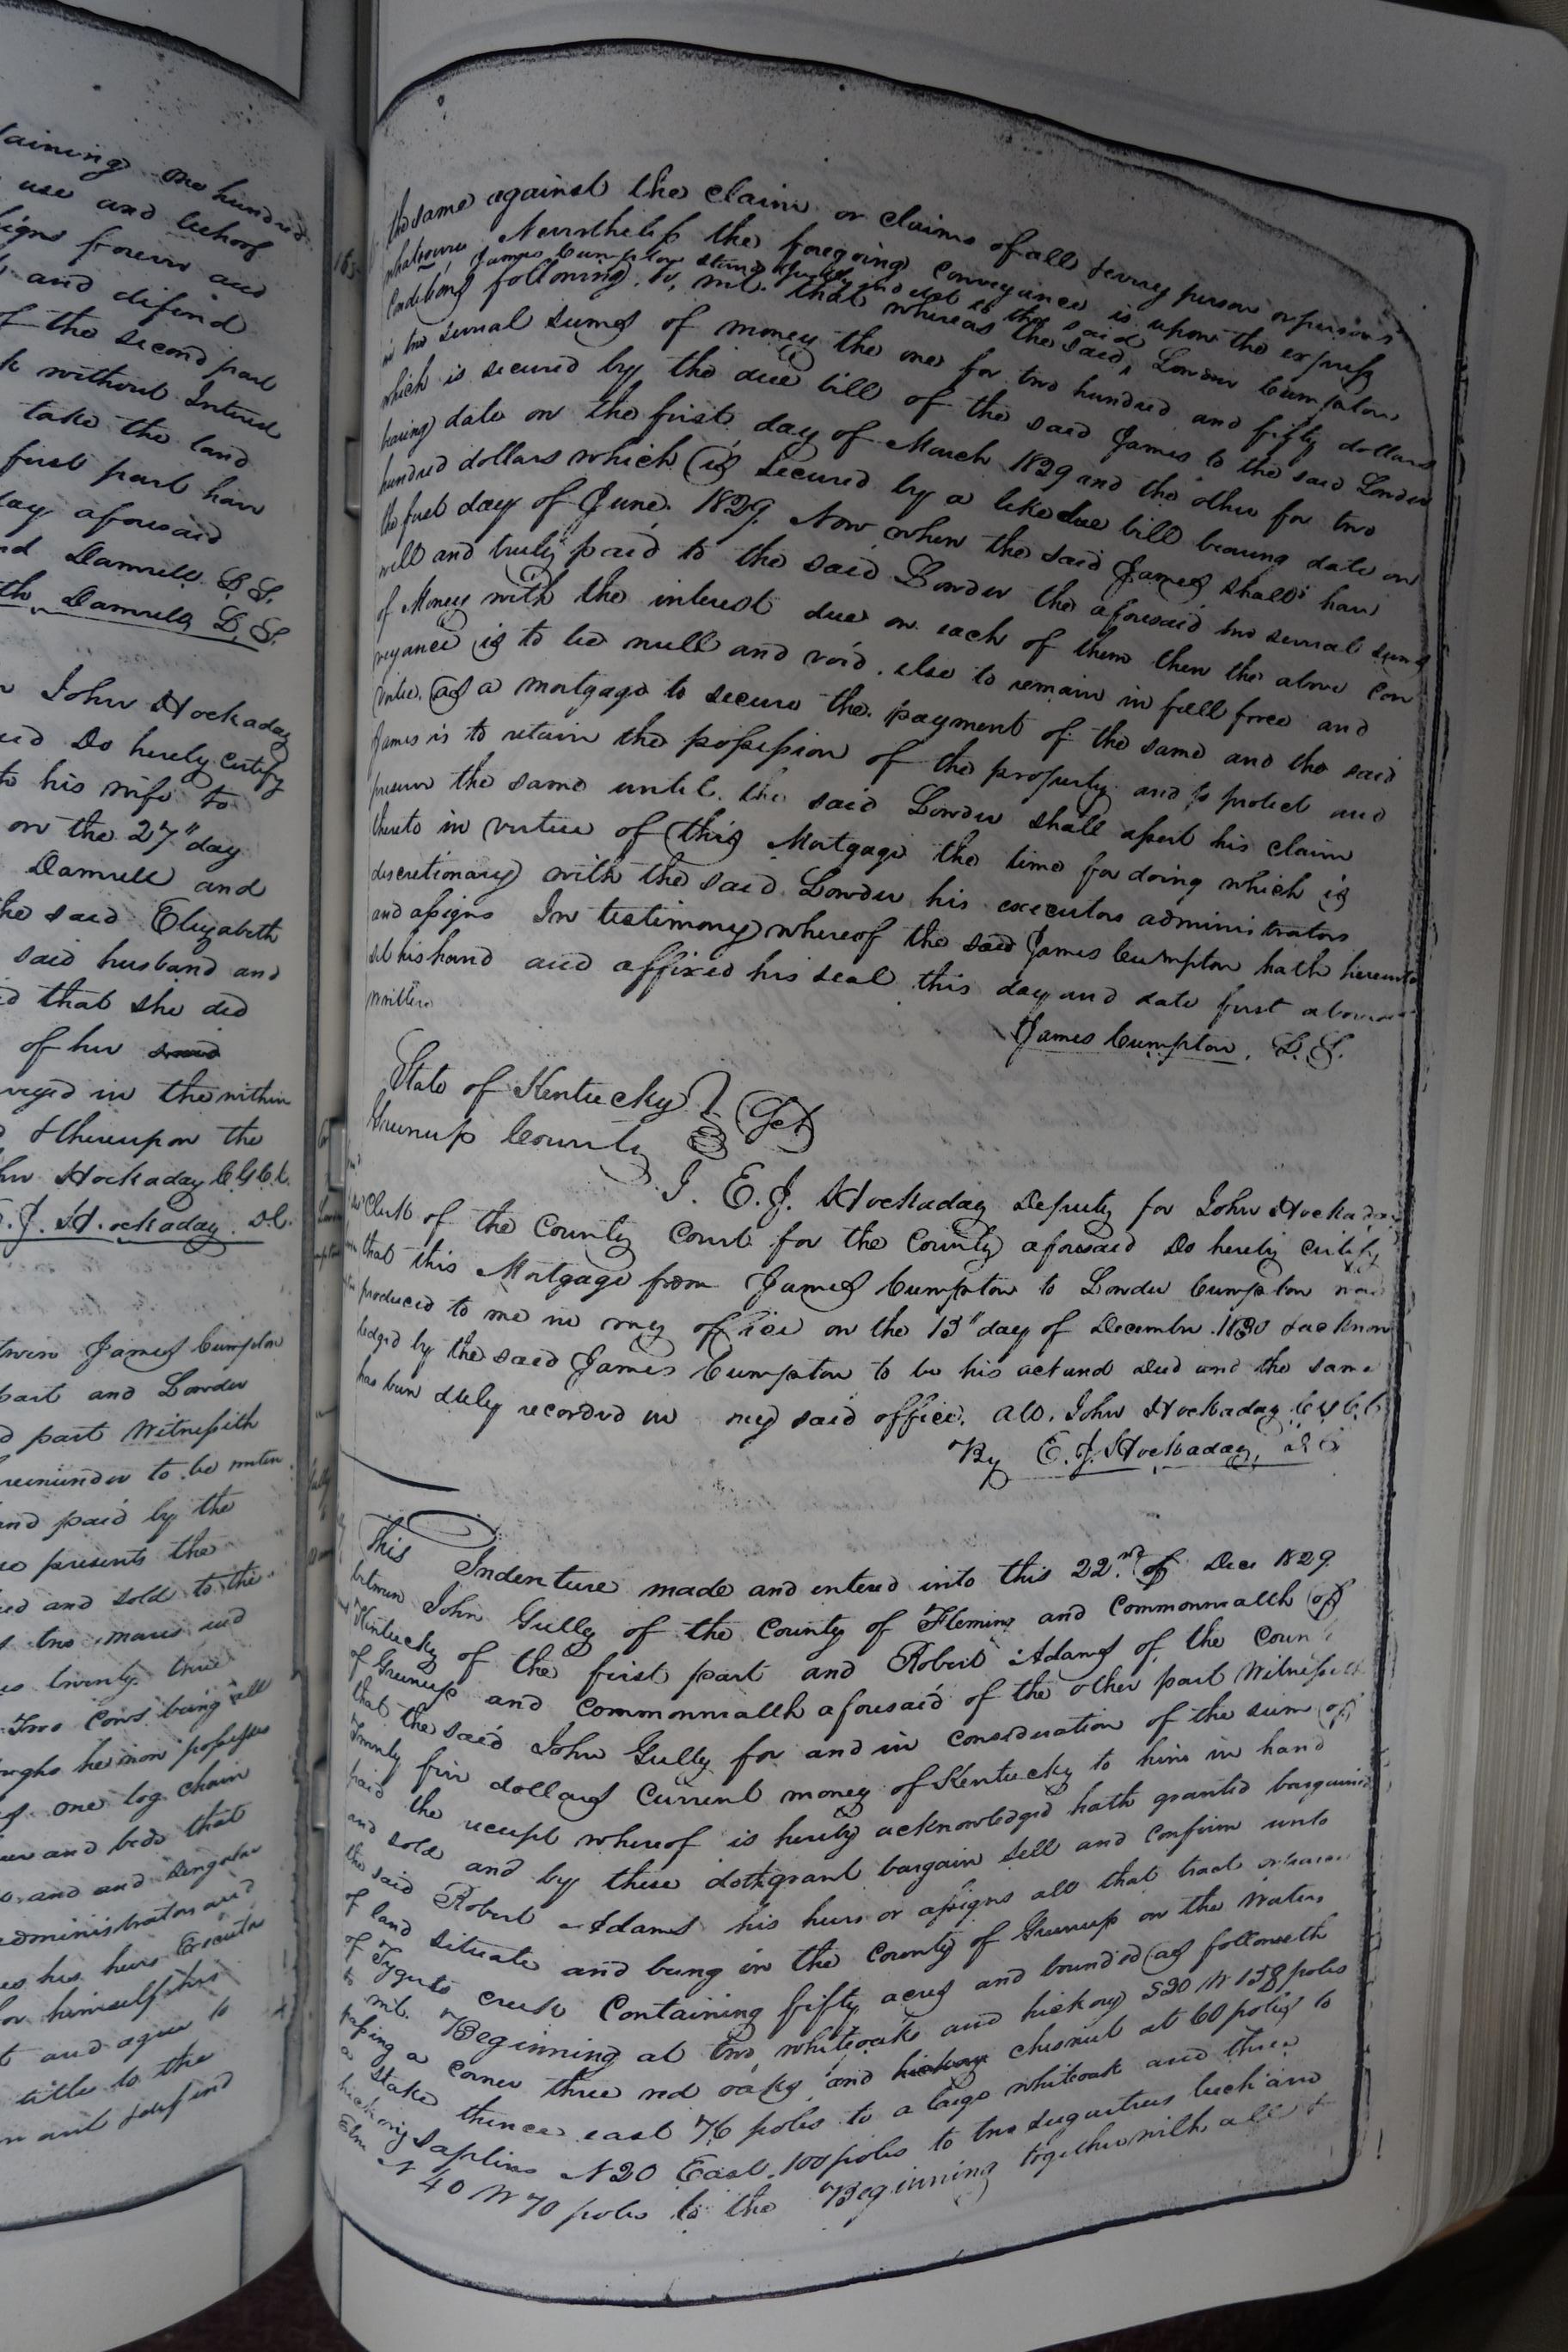 laining one hundred
use and behoof
signs forever and
and difind
of the second part
without Intered
take the land
first part have
day aforesaid
Damrell L.S.
Damrell L.S.
John Hockaday
Do hereby certify
to his wife to
on the 27" day
Damrell and
the said Elizabeth
said husband and
that she did
of her
veyed in the within
& thereupon the
John Hockaday C.G.C.C.
E.J. Hockaday D.C.
James Cumpton
part and Lowder
part Witnesseth
reminder to be
and paid by the
presents the
and sold to the
two mares
twenty three
Two Cows being all
he now possesses
one log chain
and beds that
and and singular
administrators and
his heirs Executor
for himself his
and agree to
title to the
and defend
the same against the claim or claims of all & every person or persons
whatsoever Nevertheless the foregoing conveyance is upon the express
Conditions following, to, wit. that whereas the said Lowder Cumpton
James Cumpton stands justly indebted to the said
in two several sums of money the one for two hundred and fifty dollars
which is secured by the due bill of the said James to the said Lowder
bearing date on the first day of March 1829 and the other for two
hundred dollars which is secured by a like due bill bearing date on
the first day of June 1829. Now when the said James shall have
well and truly paid to the said Lowder the aforesaid two several sums
of Money with the interest due on each of them then the above con
veyance is to be null and void. else to remain in full force and
virtue. as a mortgage to secure the payment of the same and the said
James is to retain the possession of the property and to protect and
preserve the same until the said Lowder shall assert his claim
thereto in virtue of this Mortgage the time for doing which is
discretionary with the said Lowder his executors administrators
and assigns In testimony whereof the said James Cumpton hath hereunto
set his hand and affixed his seal this day and date first above
written
James Cumpton, L.S.
State of Kentucky
Greenup County Sct
I. E.J. Hockaday Deputy for John Hockaday
Clerk of the County Court for the County aforesaid Do hereby certify
that this Mortgage from James Cumpton to Lowder Cumpton was
produced to me in my office on the 13" day of December 1830 & acknow
ledged by the said James Cumpton to be his act and deed and the same
has been duly recorded in my said office. Att. John Hockaday C.G.C.C.
By E.J. Hockaday, D.C.
This Indenture made and entered into this 22nd of Dec 1829
between John Gully of the County of Fleming and Commonwealth of
Kentucky of the first part and Robert Adams of the County
of Greenup and Commonwealth aforesaid of the other part Witnesseth
that the said John Gully for and in consideration of the sum of
Twenty five dollars Current money of Kentucky to him in hand
paid the receipt whereof is hereby acknowledged hath granted bargained
and sold and by these doth grant bargain sell and confirm unto
the said Robert Adams his heirs or assigns all that tract or
of land situate and being in the County of Greenup on the Waters
of Tygerts creek Containing fifty acres and bounded as followeth
to wit. Beginning at two whiteoaks and hickory S20 W 158 poles
passing a corner three red oaks and chesnut at 60 poles to
a stake thence east 76 poles to a large whiteoak and three
hickory saplins N20 East 100 poles to two sugartrees beech and
Elm N 40 W 70 poles to the Beginning together with all &